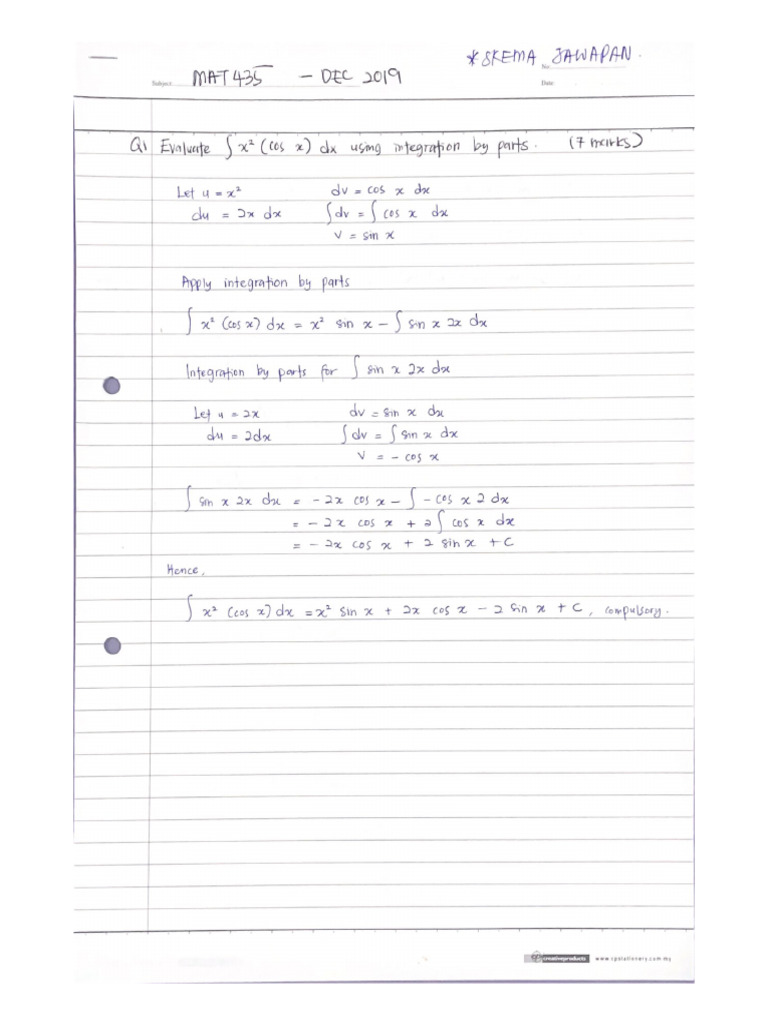 * SKEMA JAWAPAN.
No:
Subject: MAT 435 – DEC 2019
Date:
Q1 Evaluate ∫ x² (cos x) dx using integration by parts. (7 marks)
Let u = x² dv = cos x dx
du = 2x dx ∫ dv = ∫ cos x dx
V = sin x
Apply integration by parts
∫ x² (cos x) dx = x² sin x – ∫ sin x 2x dx
Integration by parts for ∫ sin x 2x dx
Let u = 2x dv = sin x dx
du = 2dx ∫ dv = ∫ sin x dx
V = – cos x
∫ sin x 2x dx = – 2x cos x – ∫ – cos x 2 dx
= – 2x cos x + 2 ∫ cos x dx
= – 2x cos x + 2 sin x + C
Hence,
∫ x² (cos x) dx = x² sin x + 2x cos x – 2 sin x + C, compulsory.
creativeproducts www.cpstationery.com.my